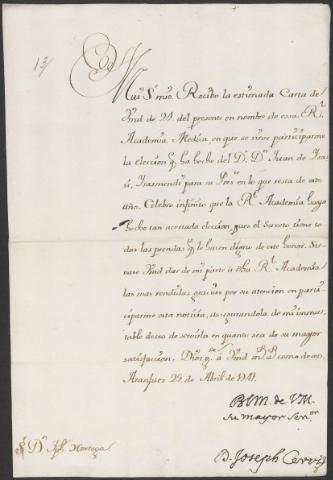 13
Mui S.r mio. Recibo la estimada Carta de
Vmd de 24 del presente en nombre de essa R.l
Academia Medica, en que se sirve participarme
la eleccion q ha hecho del D. D.n Juan de Isa
si, Isasmendi para su Pres.te en lo que resta de este
año. Celebro infinito, que la R.l Academia haya
hecho tan acertada eleccion, pues el Sugeto tiene to
das las prendas q le hacen digno de este honor. Sir
vase Vmd dar de mi parte â essa R.l Academia
las mas rendidas gracias por su atencion en parti
ciparme esta noticia, asegurandola de mi inmu
table deseo de servirla en quanto sea de su mayor
satisfaccion. Dios g.de a Vmd m.s a.s como deseo.
Aranjuez 29 de Abril de 1741.
BLM. de VM.
su mayor Ser.or
D. Joseph Cervi
S.r D.n Jph. Hortega.